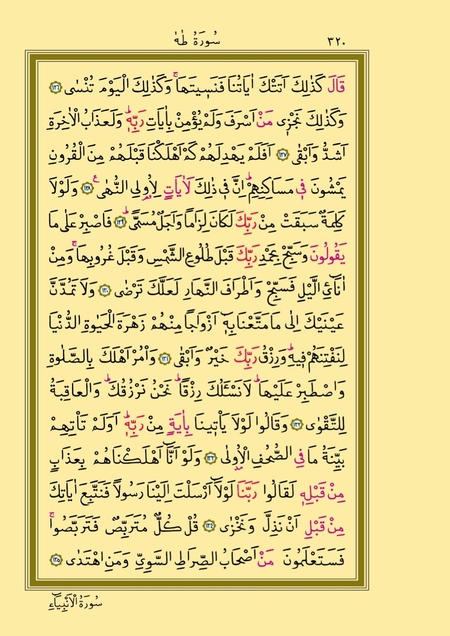 ٣٢٠ سُورَةُ طٰهٰ
قَالَ كَذٰلِكَ اَتَتْكَ اٰيَاتُنَا فَنَسٖيتَهَاۚ وَكَذٰلِكَ الْيَوْمَ تُنْسٰى ﴿١٢٦﴾
وَكَذٰلِكَ نَجْزٖى مَنْ اَسْرَفَ وَلَمْ يُؤْمِنْ بِاٰيَاتِ رَبِّهٖۜ وَلَعَذَابُ الْاٰخِرَةِ
اَشَدُّ وَاَبْقٰى ﴿١٢٧﴾ اَفَلَمْ يَهْدِ لَهُمْ كَمْ اَهْلَكْنَا قَبْلَهُمْ مِنَ الْقُرُونِ
يَمْشُونَ فٖى مَسَاكِنِهِمْۜ اِنَّ فٖى ذٰلِكَ لَاٰيَاتٍ لِاُولِى النُّهٰىۚ ﴿١٢٨﴾ وَلَوْلَا
كَلِمَةٌ سَبَقَتْ مِنْ رَبِّكَ لَكَانَ لِزَامًا وَاَجَلٌ مُسَمًّىۜ ﴿١٢٩﴾ فَاصْبِرْ عَلٰى مَا
يَقُولُونَ وَسَبِّحْ بِحَمْدِ رَبِّكَ قَبْلَ طُلُوعِ الشَّمْسِ وَقَبْلَ غُرُوبِهَاۚ وَمِنْ
اٰنَٓائِ الَّيْلِ فَسَبِّحْ وَاَطْرَافَ النَّهَارِ لَعَلَّكَ تَرْضٰى ﴿١٣٠﴾ وَلَا تَمُدَّنَّ
عَيْنَيْكَ اِلٰى مَا مَتَّعْنَا بِهٖٓ اَزْوَاجًا مِنْهُمْ زَهْرَةَ الْحَيٰوةِ الدُّنْيَا
لِنَفْتِنَهُمْ فٖيهِۜ وَرِزْقُ رَبِّكَ خَيْرٌ وَاَبْقٰى ﴿١٣١﴾ وَأْمُرْ اَهْلَكَ بِالصَّلٰوةِ
وَاصْطَبِرْ عَلَيْهَاۜ لَا نَسْـَٔلُكَ رِزْقًاۜ نَحْنُ نَرْزُقُكَۜ وَالْعَاقِبَةُ
لِلتَّقْوٰى ﴿١٣٢﴾ وَقَالُوا لَوْلَا يَأْتٖينَا بِاٰيَةٍ مِنْ رَبِّهٖۜ اَوَلَمْ تَأْتِهِمْ
بَيِّنَةُ مَا فِى الصُّحُفِ الْاُو۫لٰى ﴿١٣٣﴾ وَلَوْ اَنَّٓا اَهْلَكْنَاهُمْ بِعَذَابٍ
مِنْ قَبْلِهٖ لَقَالُوا رَبَّنَا لَوْلَٓا اَرْسَلْتَ اِلَيْنَا رَسُولًا فَنَتَّبِعَ اٰيَاتِكَ
مِنْ قَبْلِ اَنْ نَذِلَّ وَنَخْزٰى ﴿١٣٤﴾ قُلْ كُلٌّ مُتَرَبِّصٌ فَتَرَبَّصُواۚ
فَسَتَعْلَمُونَ مَنْ اَصْحَابُ الصِّرَاطِ السَّوِىِّ وَمَنِ اهْتَدٰى ﴿١٣٥﴾
سُورَةُ الْاَنْبِيَٓاءِ